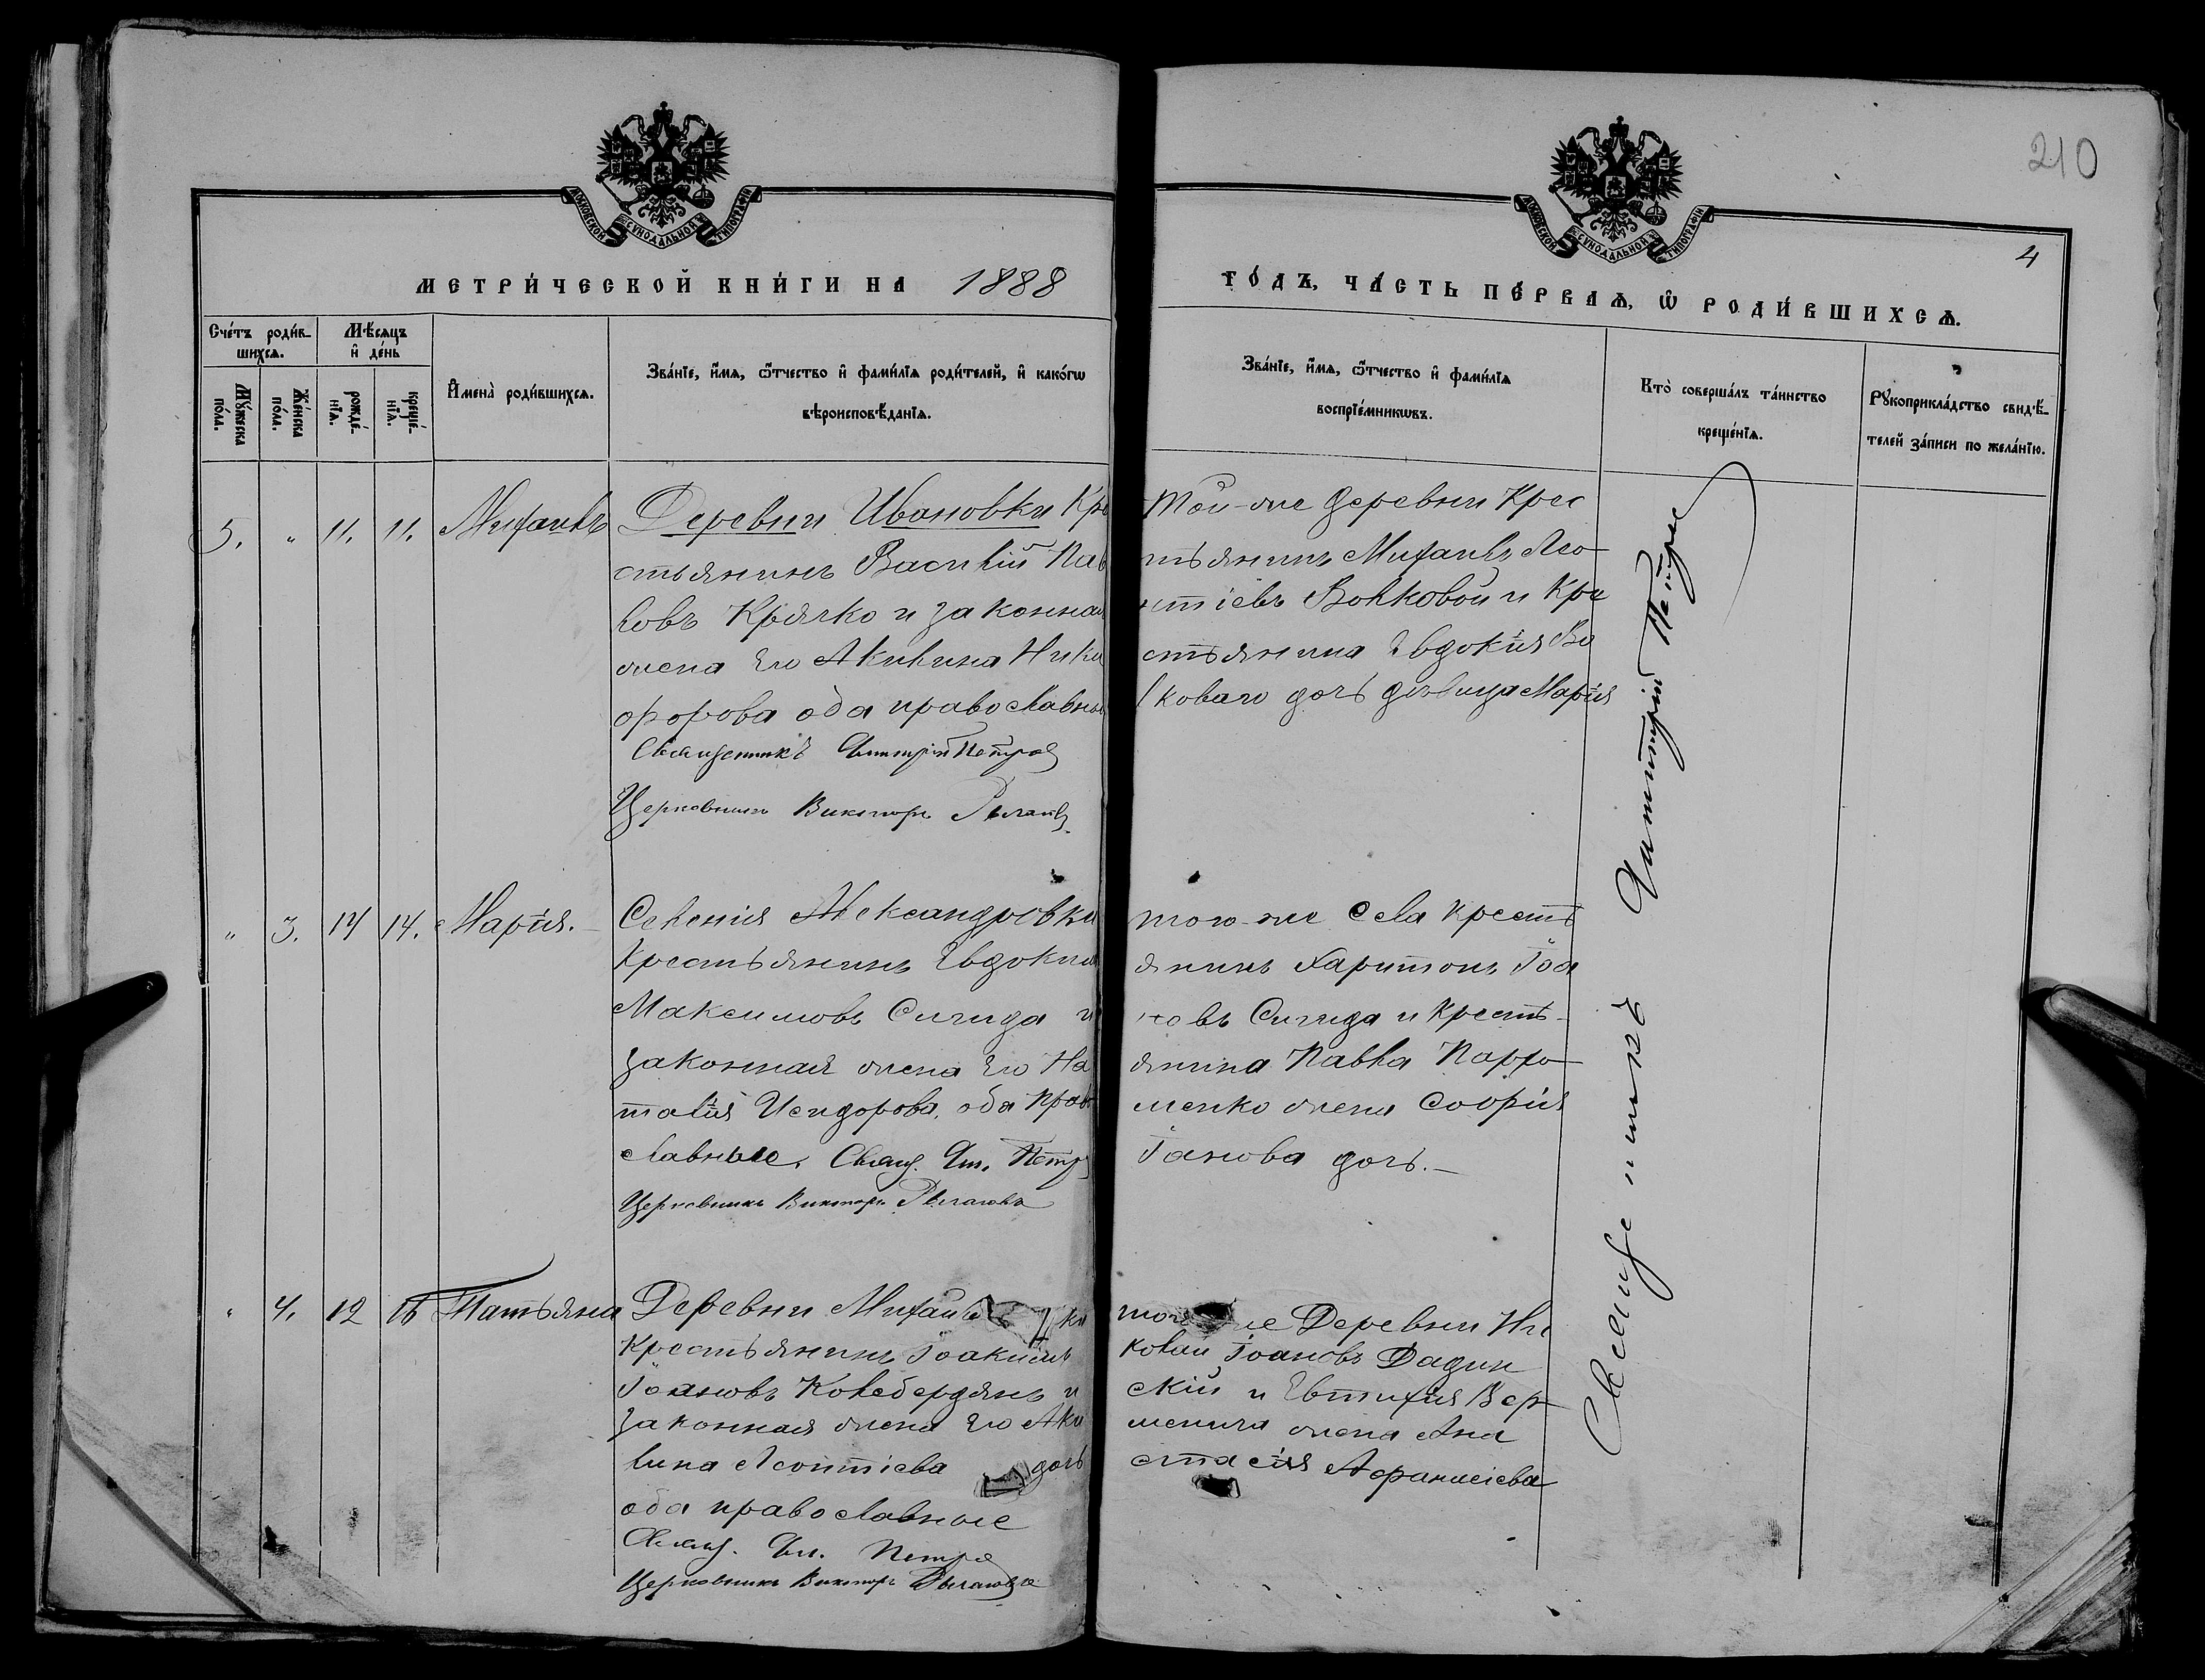 210
МОСКОВСКОЙ СѴНОДАЛЬНОЙ ТИПОГРАФІИ
МОСКОВСКОЙ СѴНОДАЛЬНОЙ ТИПОГРАФІИ
4
МЕТРИ́ЧЕСКОЙ КНИ́ГИ НА 1888
ГО́ДЪ, ЧА́СТЬ ПЕ́РВАѦ, Ѡ҆ РОДИ́ВШИХСѦ.
Сче́тъ роди́в-
шихсѧ.
Мꙋ́жеска по́ла.
Же́нска по́ла.
Мѣ́сѧцъ
и҆ де́нь
рожде́-
нїѧ.
креще́-
нїѧ.
И҆мена̀ роди́вшихсѧ.
Зва́нїе, и҆́мѧ, ѻ҆́тчество и҆ фами́лїѧ роди́телей, и҆ како́гѡ
вѣроисповѣ́данїѧ.
Зва́нїе, и҆́мѧ, ѻ҆́тчество и҆ фами́лїѧ
воспрїе́мникѡвъ.
Кто̀ соверша́лъ та́инство
креще́нїѧ.
Рꙋкоприкла́дство свидѣ́-
телей за́писи по жела́нїю.
5. " 11. 11. Михаилъ
Деревни Ивановки Кре
стьянинъ Василій Пав
ловъ Крячко и законная
жена его Акилина Ники
форова оба православные
Священникъ Димитрій Петров
Церковникъ Викторъ
Той-же деревни Крес
тьянинъ Михаилъ Лео
нтіевъ Волковой и Кре
стьянина Евдокія Во
лковаго дочь девица Марія
Священникъ Димитрій Петров
" 3. 14 14. Марія.
Селенія Александровки
Крестьянинъ Евдокимъ
Максимовъ Сигида и
законная жена его На
талія Исидорова, оба право
славные. Свящ. Дм. Петров
Церковникъ Викторъ
того-же села Кресть
янинъ Харитонъ Іоа
новъ Сигида и Кресть-
янина Павла Парфо
менко жена Софія
Іанова дочь.-
" 4. 12 16 Татьяна
Деревни Михайловки
Крестьянинъ Іоакимъ
Іоановъ Колебердянъ и
законная жена его Аки
лина Леонтіева дочь
оба православные
Свящ. Дм. Петров
Церковникъ Викторъ
тоя же Деревни Ни
колай Іоановъ Дадин
скій и Евтихія Вер
менича жена Ана
стасія Афанасіева